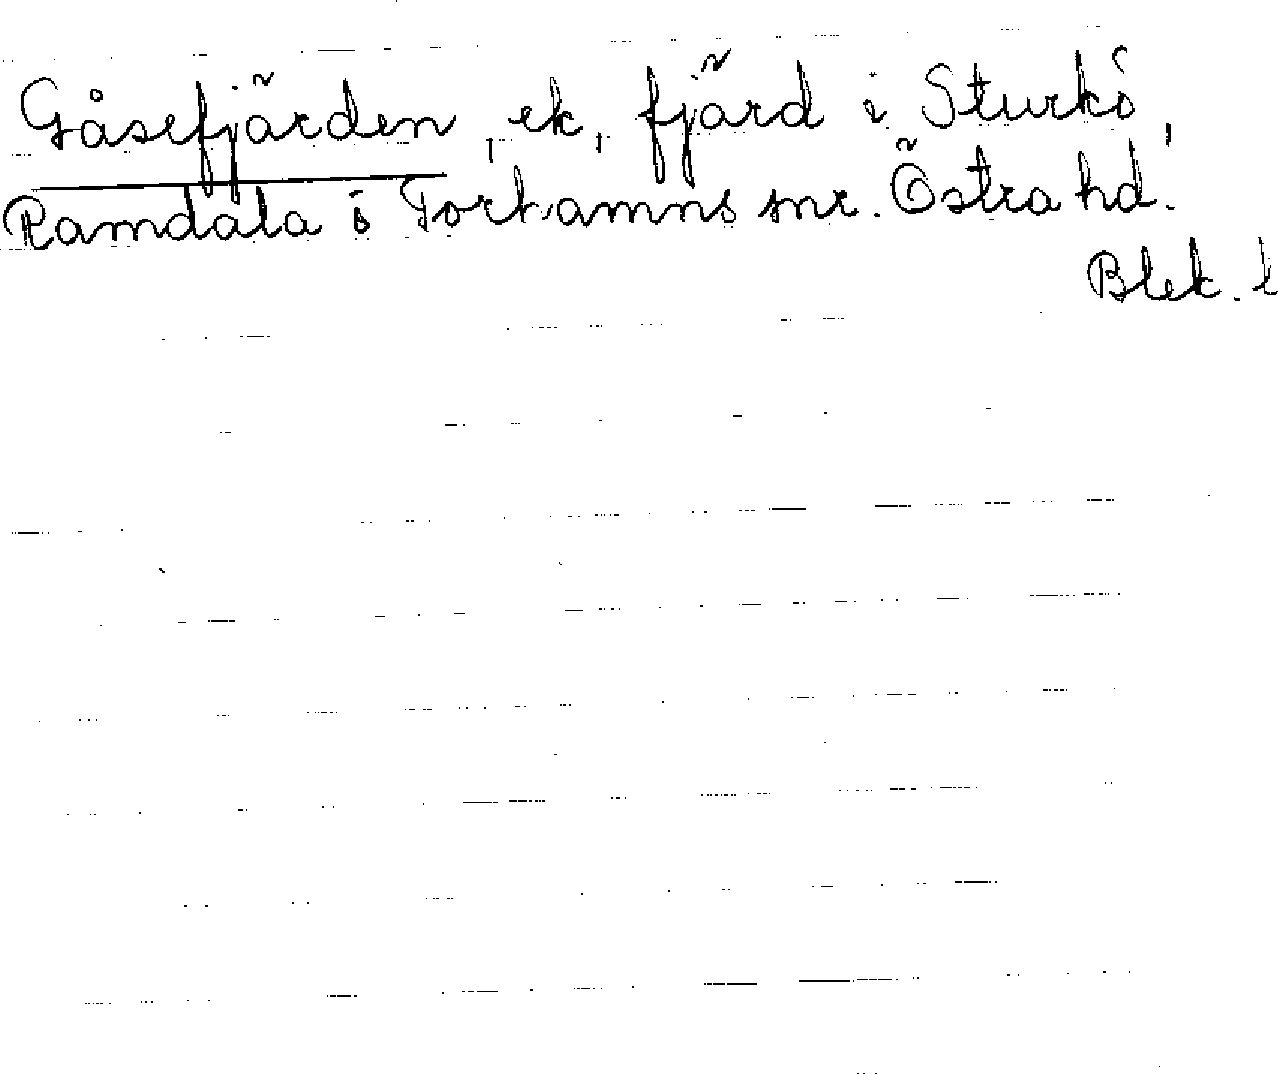 Gåsefjärden, ek, fjärd i Sturkö,
Ramdala o Torhamns snr. Östra hd.
Blek. l